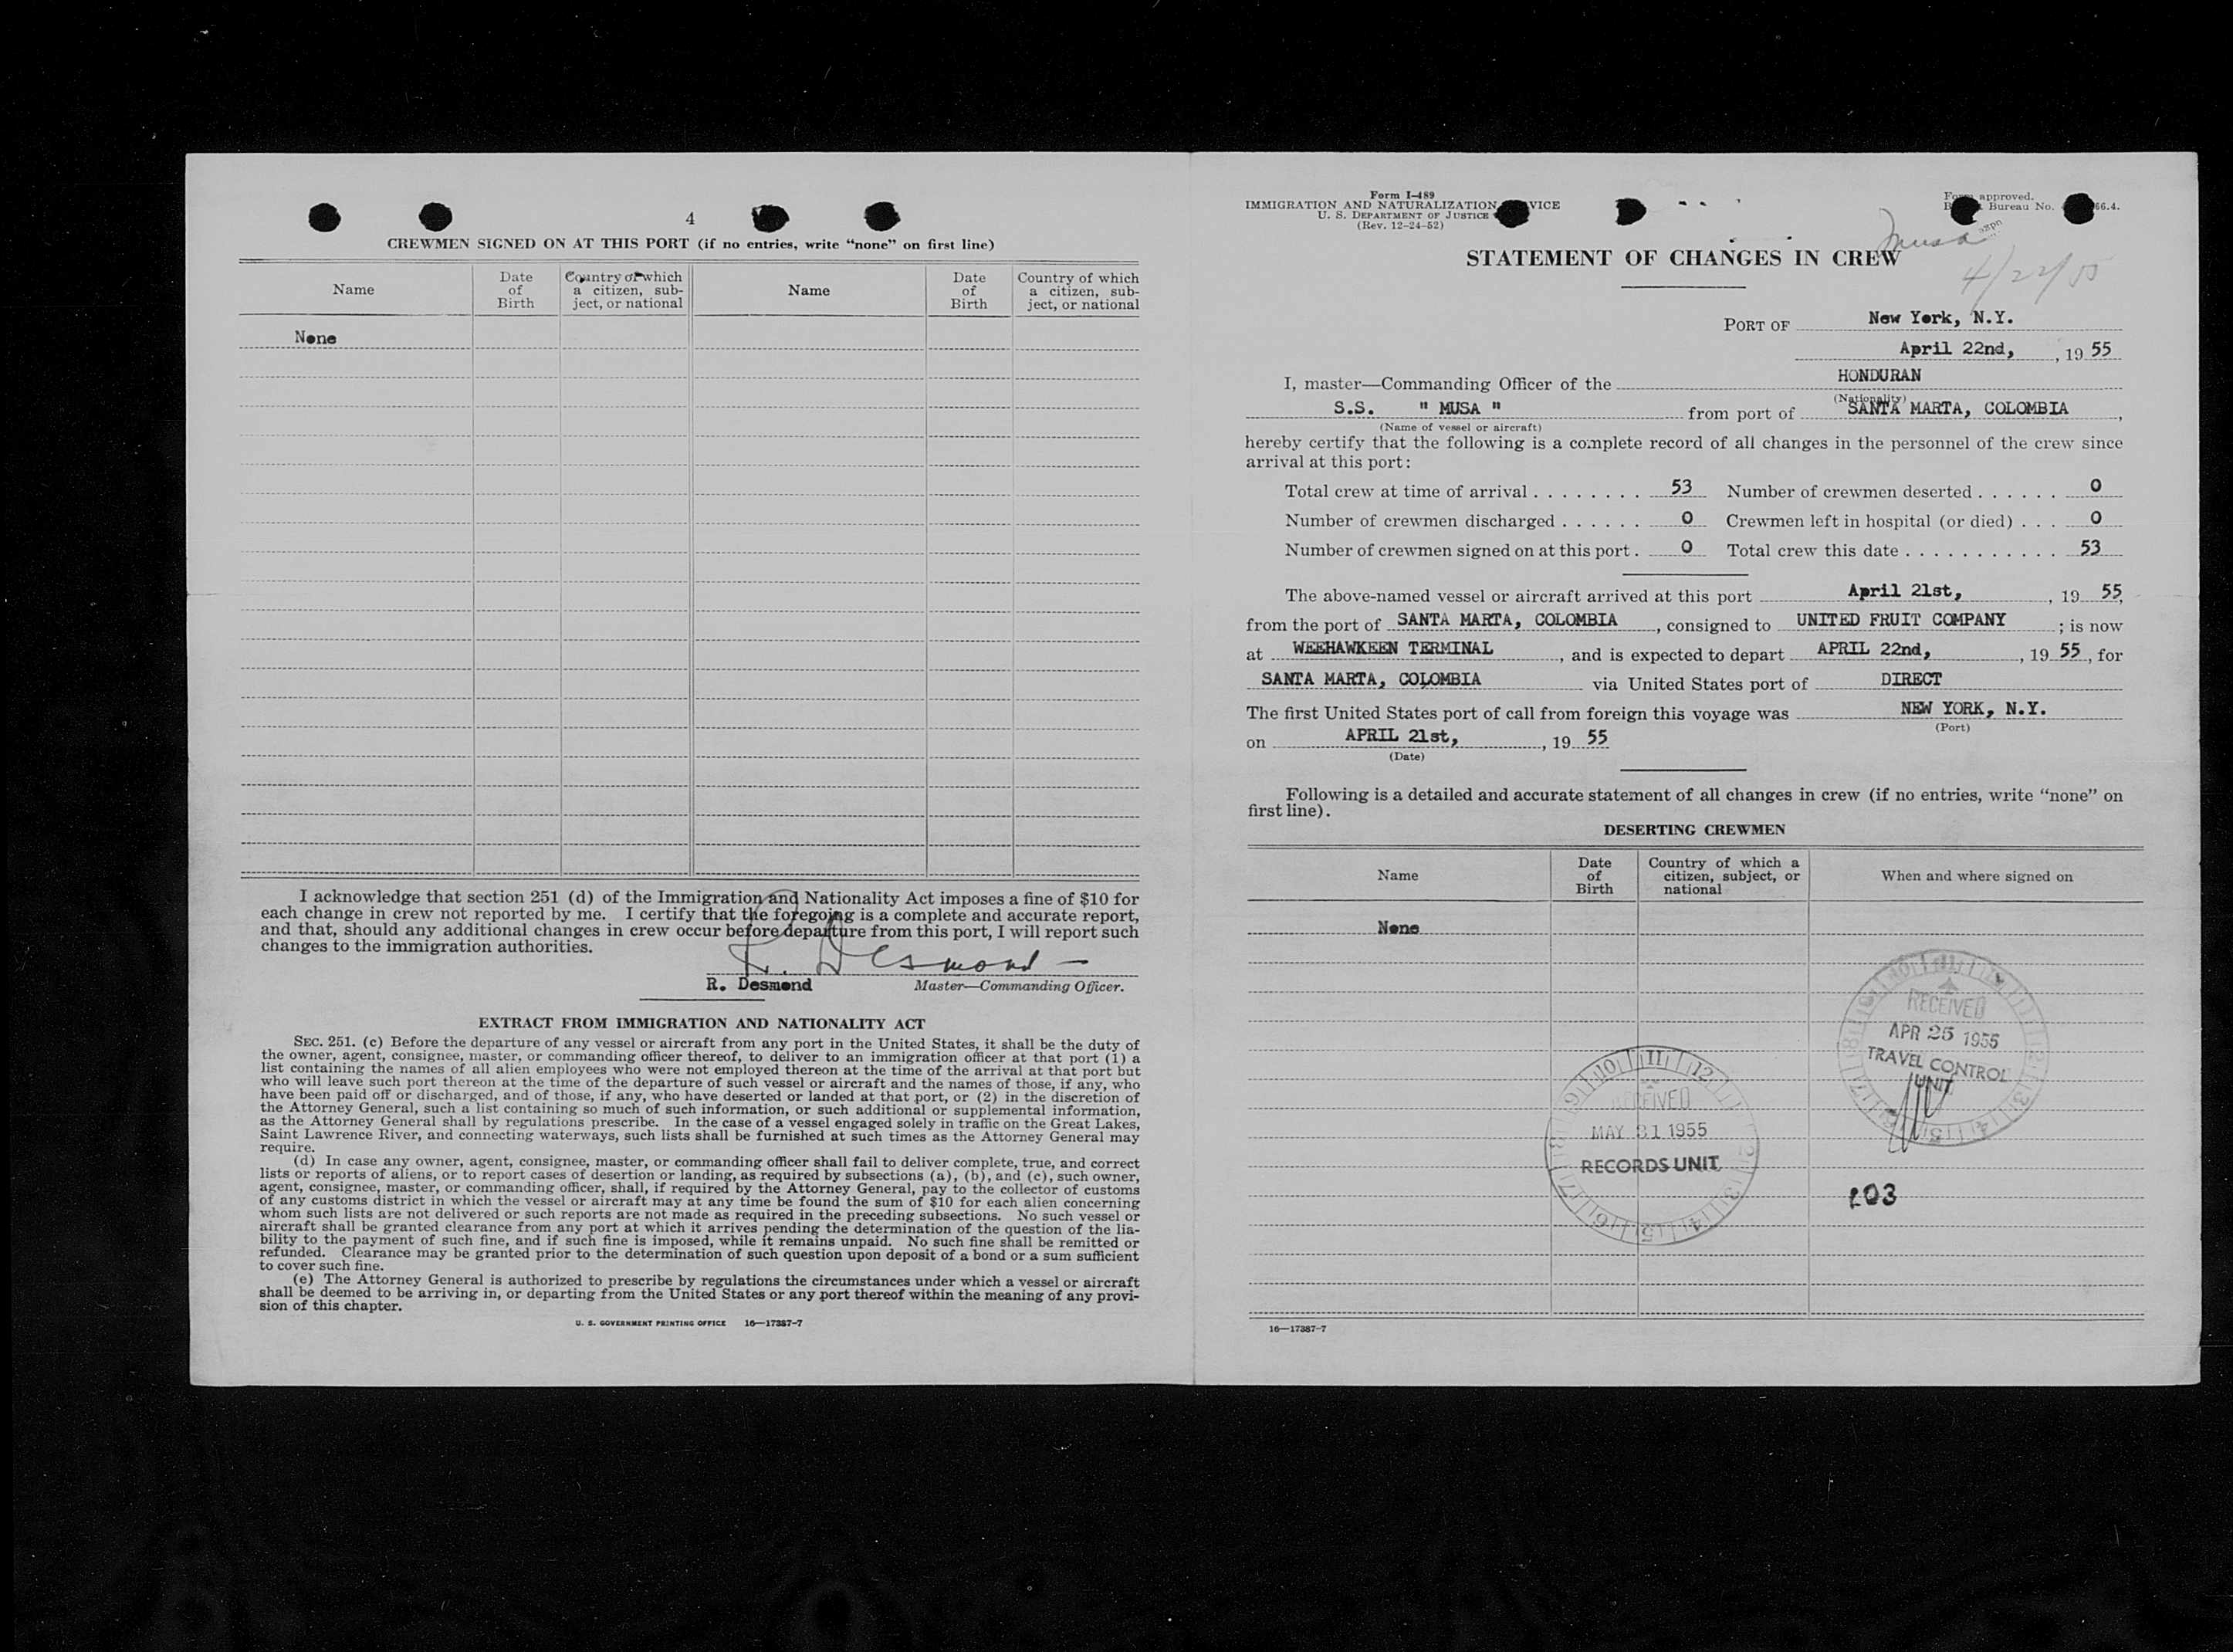 4
CREWMEN SIGNED ON AT THIS PORT (if no entries, write “none” on first line)
Name
Date of Birth
Country of which a citizen, subject, or national
Name
Date of Birth
Country of which a citizen, subject, or national
None
I acknowledge that section 251 (d) of the Immigration and Nationality Act imposes a fine of $10 for
each change in crew not reported by me. I certify that the foregoing is a complete and accurate report,
and that, should any additional changes in crew occur before departure from this port, I will report such
changes to the immigration authorities.
R. Desmond
R. Desmond Master—Commanding Officer.
EXTRACT FROM IMMIGRATION AND NATIONALITY ACT
SEC. 251. (c) Before the departure of any vessel or aircraft from any port in the United States, it shall be the duty of
the owner, agent, consignee, master, or commanding officer thereof, to deliver to an immigration officer at that port (1) a
list containing the names of all alien employees who were not employed thereon at the time of the arrival at that port but
who will leave such port thereon at the time of the departure of such vessel or aircraft and the names of those, if any, who
have been paid off or discharged, and of those, if any, who have deserted or landed at that port, or (2) in the discretion of
the Attorney General, such a list containing so much of such information, or such additional or supplemental information,
as the Attorney General shall by regulations prescribe. In the case of a vessel engaged solely in traffic on the Great Lakes,
Saint Lawrence River, and connecting waterways, such lists shall be furnished at such times as the Attorney General may
require.
(d) In case any owner, agent, consignee, master, or commanding officer shall fail to deliver complete, true, and correct
lists or reports of aliens, or to report cases of desertion or landing, as required by subsections (a), (b), and (c), such owner,
agent, consignee, master, or commanding officer, shall, if required by the Attorney General, pay to the collector of customs
of any customs district in which the vessel or aircraft may at any time be found the sum of $10 for each alien concerning
whom such lists are not delivered or such reports are not made as required in the preceding subsections. No such vessel or
aircraft shall be granted clearance from any port at which it arrives pending the determination of the question of the lia-
bility to the payment of such fine, and if such fine is imposed, while it remains unpaid. No such fine shall be remitted or
refunded. Clearance may be granted prior to the determination of such question upon deposit of a bond or a sum sufficient
to cover such fine.
(e) The Attorney General is authorized to prescribe by regulations the circumstances under which a vessel or aircraft
shall be deemed to be arriving in, or departing from the United States or any port thereof within the meaning of any provi-
sion of this chapter.
U. S. GOVERNMENT PRINTING OFFICE 16—17387-7
Form I-489
IMMIGRATION AND NATURALIZATION VICE
U. S. DEPARTMENT OF JUSTICE
(Rev. 12-24-52)
approved.
Bureau No. 66.4.
Musa
4/22/55
STATEMENT OF CHANGES IN CREW
PORT OF New York, N.Y.
April 22nd, , 19 55
I, master—Commanding Officer of the HONDURAN
(Nationality)
S.S. " MUSA " from port of SANTA MARTA, COLOMBIA ,
(Name of vessel or aircraft)
hereby certify that the following is a complete record of all changes in the personnel of the crew since
arrival at this port:
Total crew at time of arrival . . . . . . . . 53 Number of crewmen deserted . . . . . . 0
Number of crewmen discharged . . . . . . 0 Crewmen left in hospital (or died) . . . 0
Number of crewmen signed on at this port . 0 Total crew this date . . . . . . . . . . . 53
The above-named vessel or aircraft arrived at this port April 21st, , 19 55,
from the port of SANTA MARTA, COLOMBIA , consigned to UNITED FRUIT COMPANY ; is now
at WEEHAWKEEN TERMINAL , and is expected to depart APRIL 22nd, , 19 55 , for
SANTA MARTA, COLOMBIA via United States port of DIRECT
The first United States port of call from foreign this voyage was NEW YORK, N.Y.
(Port)
on APRIL 21st, , 19 55
(Date)
Following is a detailed and accurate statement of all changes in crew (if no entries, write “none” on
first line).
DESERTING CREWMEN
Name
Date of Birth
Country of which a citizen, subject, or national
When and where signed on
None
RECEIVED
APR 25 1955
TRAVEL CONTROL
UNIT
RECEIVED
MAY 31 1955
RECORDS UNIT
103
16—17387-7